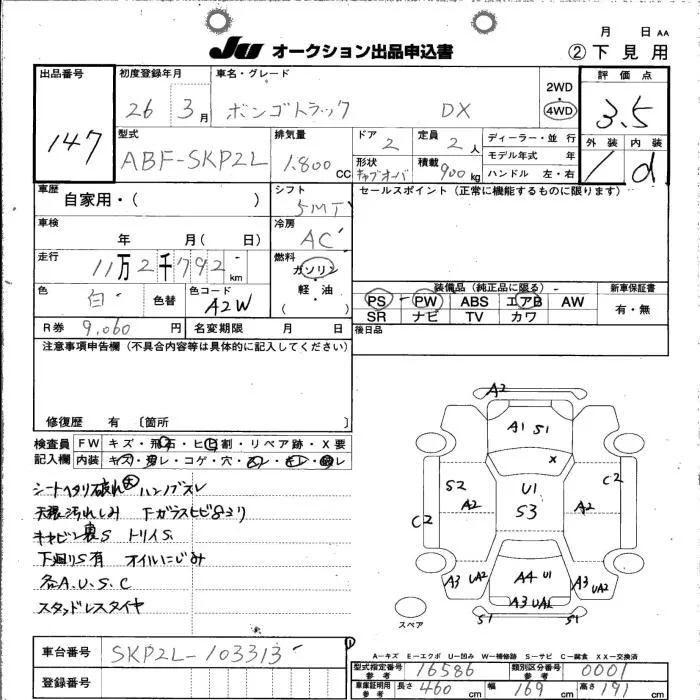 月 日 AA
JU オークション出品申込書 ②下見用
出品番号 初度登録年月 車名・グレード 評価点
147 26 3月 ボンゴトラック DX 2WD 4WD 3.5
型式 排気量 ドア 定員 ディーラー・並行 外装 内装
ABF-SKP2L 1.800CC 2 2人 モデル年式 年 1 d
形状 キャブオーバ 積載 900kg ハンドル 左・右
車歴 シフト セールスポイント(正常に機能するものに限ります)
自家用・( ) 5MT
車検 冷房
年 月( 日) AC
走行 燃料
11万2千792km ガソリン・軽油
( )
色 白 色替 色コード A2W
装備品(純正品に限る) 新車保証書
PS PW ABS エアB AW 有・無
SR ナビ TV カワ
R券 9,060円 名変期限 月 日 後日品
注意事項申告欄(不具合内容等は具体的に記入してください)
修復歴 有 〔箇所 〕
検査員 FW キズ・飛石・ヒビ割・リペア跡・X要
記入欄 内装 キズ・汚レ・コゲ・穴
シートヘタリ破れ大 ハンドズレ
天張汚れしみ 下ガラスヒビ
キャビン裏S トリイS
下廻りS有 オイルにじみ
各A.U.S.C
スタッドレスタイヤ
A2
A1 S1
X
S2 A2 U1 S3 A2 C2
C2
A3 UA2 A4 U1 A3 UA2
A3 UA2
S1 S1
スペア
A-キズ E-エクボ U-凹み W-補修跡 S-サビ C-腐食 XX-交換済
車台番号 SKP2L-103313
型式指定番号 参考 16586 類別区分番号 参考 0001
登録番号
車庫証明用 参考 長さ 460cm 幅 169cm 高さ 191cm